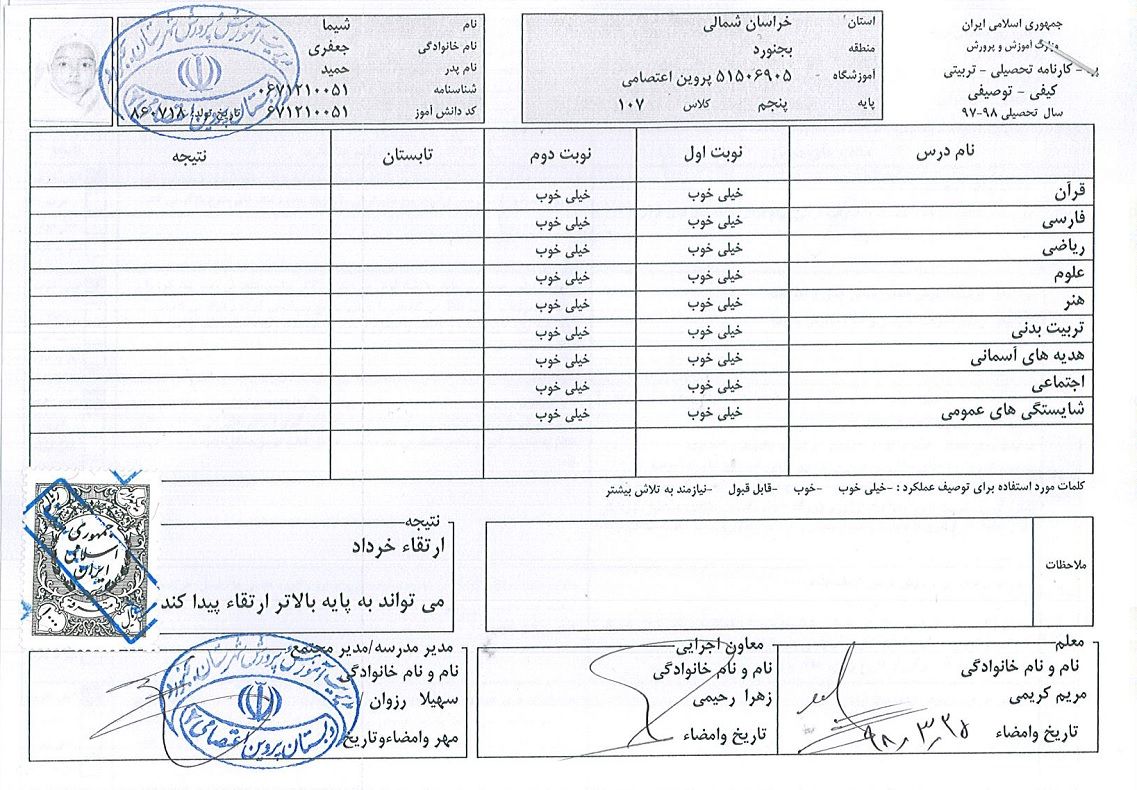 جمهوری اسلامی ایران
وزارت آموزش و پرورش
کارنامه تحصیلی - تربیتی
کیفی - توصیفی
سال تحصیلی ۹۸-۹۷
استان: خراسان شمالی
منطقه بجنورد
آموزشگاه ۵۱۵۰۶۹۰۵ پروین اعتصامی
پایه پنجم کلاس ۱۰۷
نام شیما
نام خانوادگی جعفری
نام پدر حمید
شناسنامه ۰۶۷۱۲۱۰۰۵۱
کد دانش آموز ۶۷۱۲۱۰۰۵۱ تاریخ تولد: ۸۶۰۷۱۸
نام درس نوبت اول نوبت دوم تابستان نتیجه
قرآن خیلی خوب خیلی خوب
فارسی خیلی خوب خیلی خوب
ریاضی خیلی خوب خیلی خوب
علوم خیلی خوب خیلی خوب
هنر خیلی خوب خیلی خوب
تربیت بدنی خیلی خوب خیلی خوب
هدیه های آسمانی خیلی خوب خیلی خوب
اجتماعی خیلی خوب خیلی خوب
شایستگی های عمومی خیلی خوب خیلی خوب
کلمات مورد استفاده برای توصیف عملکرد : -خیلی خوب -خوب -قابل قبول -نیازمند به تلاش بیشتر
ملاحظات
نتیجه
ارتقاء خرداد
می تواند به پایه بالاتر ارتقاء پیدا کند
جمهوری
اسلامی
ایران
۱۰۰۰
ریال
معلم
نام و نام خانوادگی
مریم کریمی
تاریخ وامضاء ۹۸,۳,۲۵
معاون اجرایی
نام و نام خانوادگی
زهرا رحیمی
تاریخ وامضاء
مدیر مدرسه/مدیر مجتمع
نام و نام خانوادگی
سهیلا رزوان
مهر وامضاءوتاریخ
مدیریت آموزش و پرورش شهرستان بجنورد
دبستان پروین اعتصامی